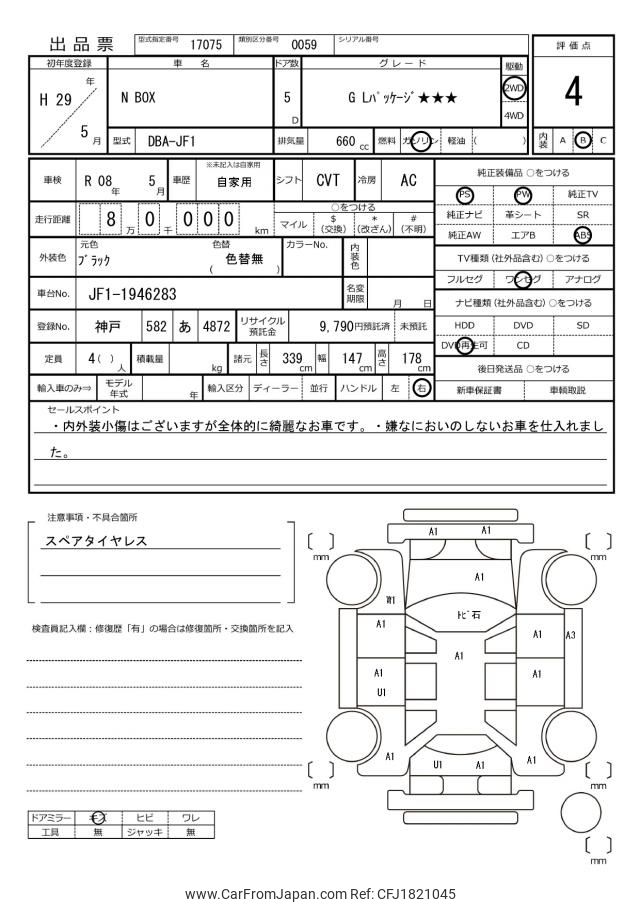 出品票 型式指定番号 17075 類別区分番号 0059 シリアル番号
評価点
4
内装 A B C
初年度登録 車名 ドア数 グレード 駆動
H 29 年 5 月
N BOX 5 D G Lパッケージ★★★ 2WD
4WD
型式 DBA-JF1 排気量 660 cc 燃料 ガソリン 軽油 ( )
車検 R 08 年 5 月 車歴 ※未記入は自家用 自家用 シフト CVT 冷房 AC
走行距離 8 万 0 千 0 0 0 km
○をつける
マイル $ (交換) * (改ざん) # (不明)
外装色 元色 ブラック 色替 ( 色替無 ) カラーNo. 内装色
車台No. JF1-1946283 名変期限 月 日
登録No. 神戸 582 あ 4872 リサイクル預託金 9,790円預託済 未預託
定員 4( ) 人 積載量 kg 諸元 長さ 339 cm 幅 147 cm 高さ 178 cm
輸入車のみ⇒ モデル年式 年 輸入区分 ディーラー 並行 ハンドル 左 右
純正装備品 ○をつける
PS PW 純正TV
純正ナビ 革シート SR
純正AW エアB ABS
TV種類 (社外品含む) ○をつける
フルセグ ワンセグ アナログ
ナビ種類 (社外品含む) ○をつける
HDD DVD SD
DVD再生可 CD
後日発送品 ○をつける
新車保証書 車輌取説
セールスポイント
・内外装小傷はございますが全体的に綺麗なお車です。・嫌なにおいのしないお車を仕入れまし
た。
注意事項・不具合箇所
スペアタイヤレス
検査員記入欄：修復歴「有」の場合は修復箇所・交換箇所を記入
ドアミラー キズ ヒビ ワレ
工具 無 ジャッキ 無
A1 A1
mm mm
A1
W1
トビ石
A1 A1 A3
A1
A1 A1
U1
A1 U1 A1 A1
mm mm
mm
www.CarFromJapan.com Ref: CFJ1821045